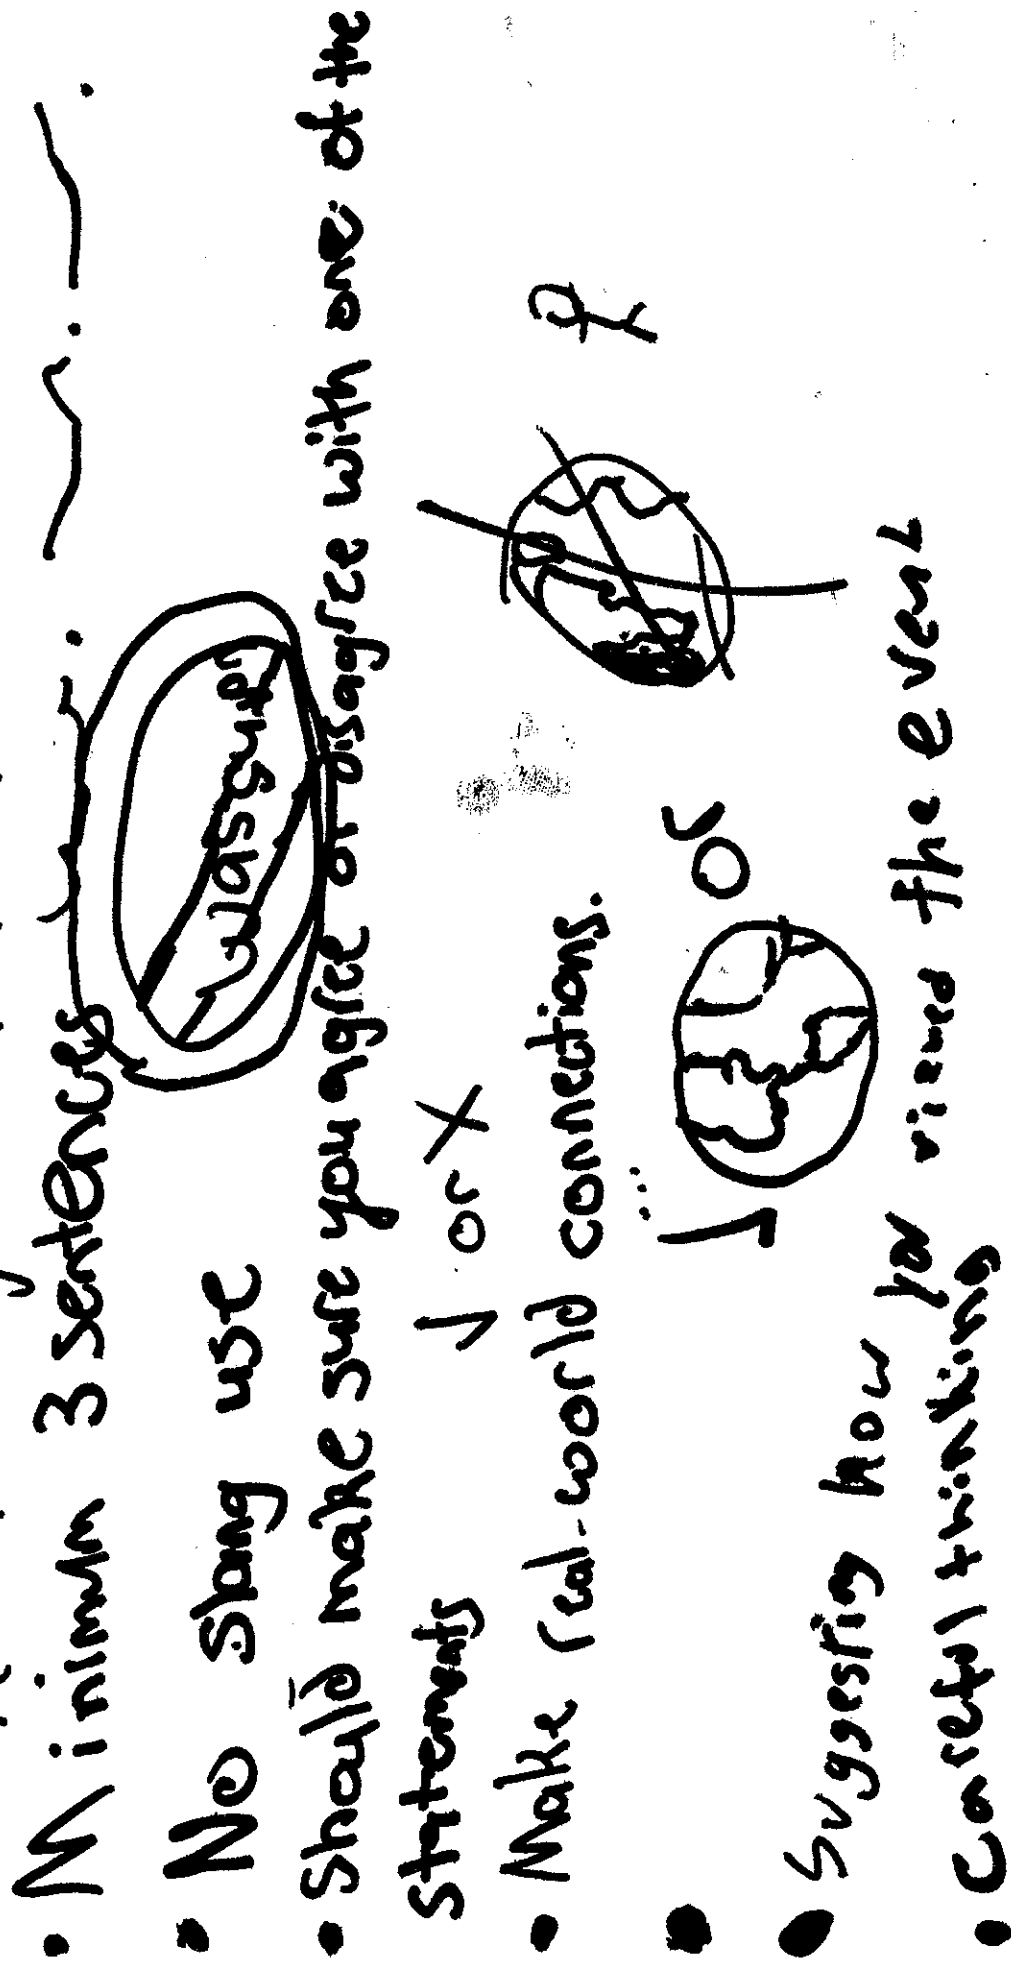 • Minimum 3 sentences
• No slang use
wassup
• Should make sure you agree or disagree with one of the
statements
✓ or X
• Make real-world connections.
or
• Suggesting how you viewed the event
• Careful thinking